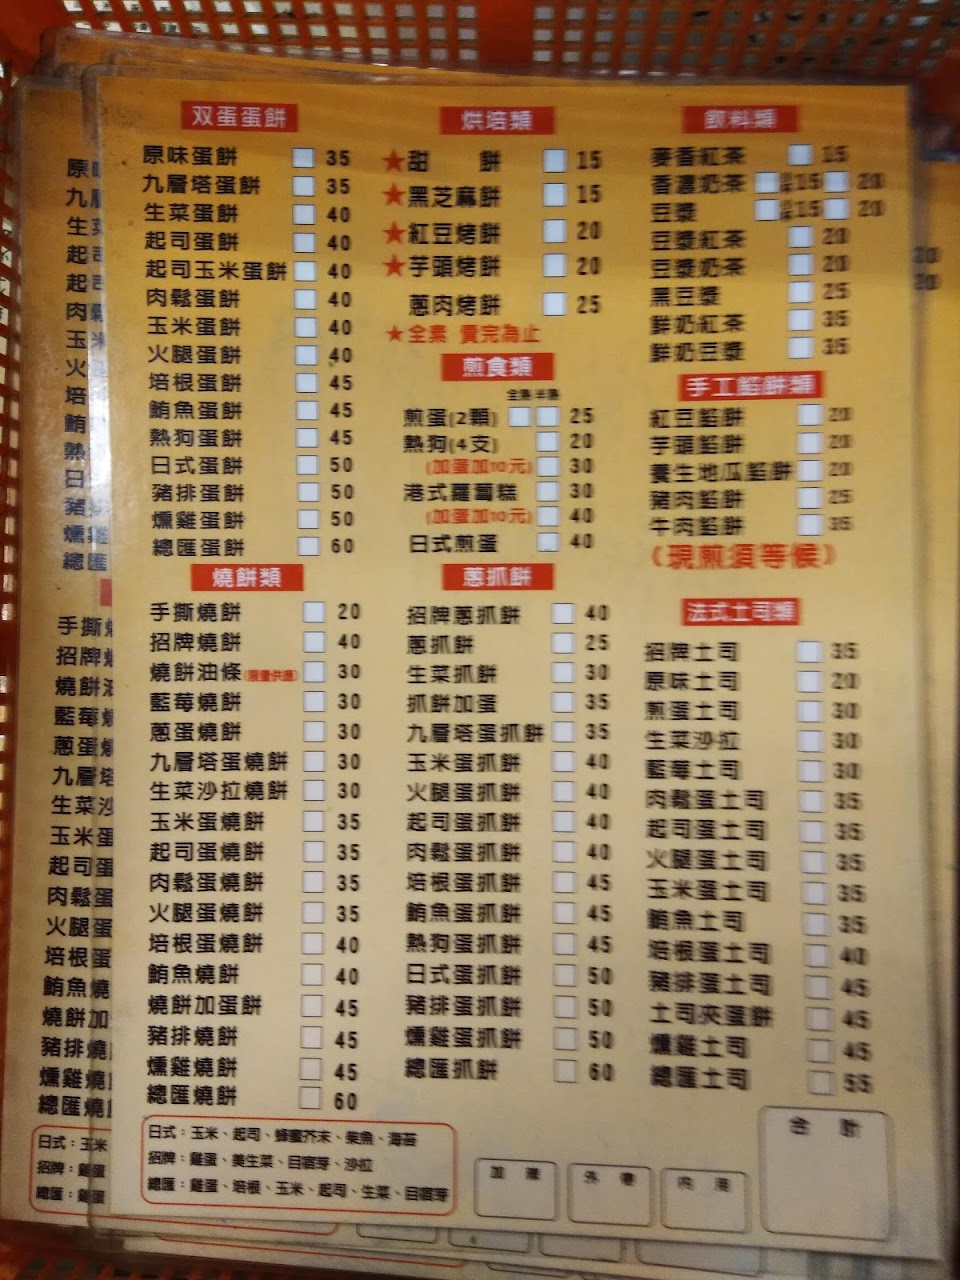 双蛋蛋餅
原味蛋餅 35
九層塔蛋餅 35
生菜蛋餅 40
起司蛋餅 40
起司玉米蛋餅 40
肉鬆蛋餅 40
玉米蛋餅 40
火腿蛋餅 40
培根蛋餅 45
鮪魚蛋餅 45
熱狗蛋餅 45
日式蛋餅 50
豬排蛋餅 50
燻雞蛋餅 50
總匯蛋餅 60
燒餅類
手撕燒餅 20
招牌燒餅 40
燒餅油條(限量供應) 30
藍莓燒餅 30
蔥蛋燒餅 30
九層塔蛋燒餅 30
生菜沙拉燒餅 30
玉米蛋燒餅 35
起司蛋燒餅 35
肉鬆蛋燒餅 35
火腿蛋燒餅 35
培根蛋燒餅 40
鮪魚燒餅 40
燒餅加蛋餅 45
豬排燒餅 45
燻雞燒餅 45
總匯燒餅 60
日式：玉米、起司、蜂蜜芥末、柴魚、海苔
招牌：雞蛋、美生菜、目宿芽、沙拉
總匯：雞蛋、培根、玉米、起司、生菜、目宿芽
烘培類
★甜 餅 15
★黑芝麻餅 15
★紅豆烤餅 20
★芋頭烤餅 20
蔥肉烤餅 25
★全素 賣完為止
煎食類
全熟 半熟
煎蛋(2顆) 25
熱狗(4支) 20
(加蛋加10元) 30
港式蘿蔔糕 30
(加蛋加10元) 40
日式煎蛋 40
蔥抓餅
招牌蔥抓餅 40
蔥抓餅 25
生菜抓餅 30
抓餅加蛋 35
九層塔蛋抓餅 35
玉米蛋抓餅 40
火腿蛋抓餅 40
起司蛋抓餅 40
肉鬆蛋抓餅 40
培根蛋抓餅 45
鮪魚蛋抓餅 45
熱狗蛋抓餅 45
日式蛋抓餅 50
豬排蛋抓餅 50
燻雞蛋抓餅 50
總匯抓餅 60
飲料類
麥香紅茶 15
香濃奶茶 15 20
豆漿 15 20
豆漿紅茶 20
豆漿奶茶 20
黑豆漿 25
鮮奶紅茶 35
鮮奶豆漿 35
手工餡餅類
紅豆餡餅 20
芋頭餡餅 20
養生地瓜餡餅 20
豬肉餡餅 25
牛肉餡餅 35
(現煎須等候)
法式土司類
招牌土司 35
原味土司 20
煎蛋土司 30
生菜沙拉 30
藍莓土司 30
肉鬆蛋土司 35
起司蛋土司 35
火腿蛋土司 35
玉米蛋土司 35
鮪魚土司 35
培根蛋土司 40
豬排蛋土司 45
土司夾蛋餅 45
燻雞土司 45
總匯土司 55
加 辣
外 帶
內 用
合 計